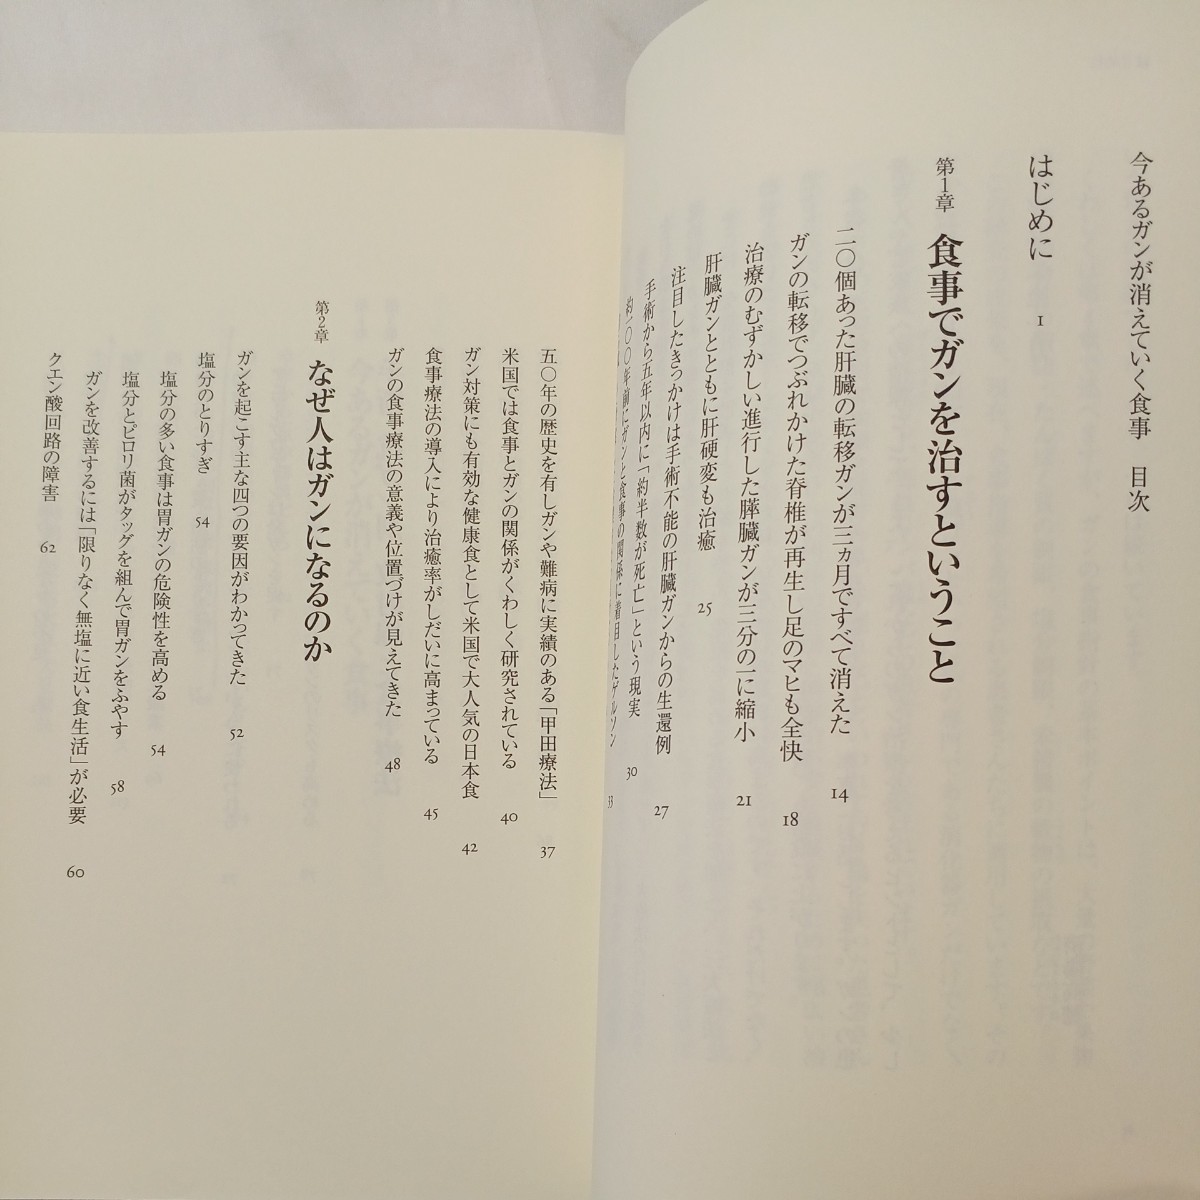 今あるガンが消えていく食事　目次
はじめに　1
第1章　食事でガンを治すということ
二〇個あった肝臓の転移ガンが三ヵ月ですべて消えた　14
ガンの転移でつぶれかけた脊椎が再生し足のマヒも全快　18
治療のむずかしい進行した膵臓ガンが三分の一に縮小　21
肝臓ガンとともに肝硬変も治癒　25
注目したきっかけは手術不能の肝臓ガンからの生還例　27
手術から五年以内に「約半数が死亡」という現実　30
約一〇〇年前にガンと食事の関係に着目したゲルソン　33
五〇年の歴史を有しガンや難病に実績のある「甲田療法」　37
米国では食事とガンの関係がくわしく研究されている　40
ガン対策にも有効な健康食として米国で大人気の日本食　42
食事療法の導入により治癒率がしだいに高まっている　45
ガンの食事療法の意義や位置づけが見えてきた　48
第2章　なぜ人はガンになるのか
ガンを起こす主な四つの要因がわかってきた　52
塩分のとりすぎ　54
塩分の多い食事は胃ガンの危険性を高める　54
塩分とピロリ菌がタッグを組んで胃ガンをふやす　58
ガンを改善するには「限りなく無塩に近い食生活」が必要　60
クエン酸回路の障害　62